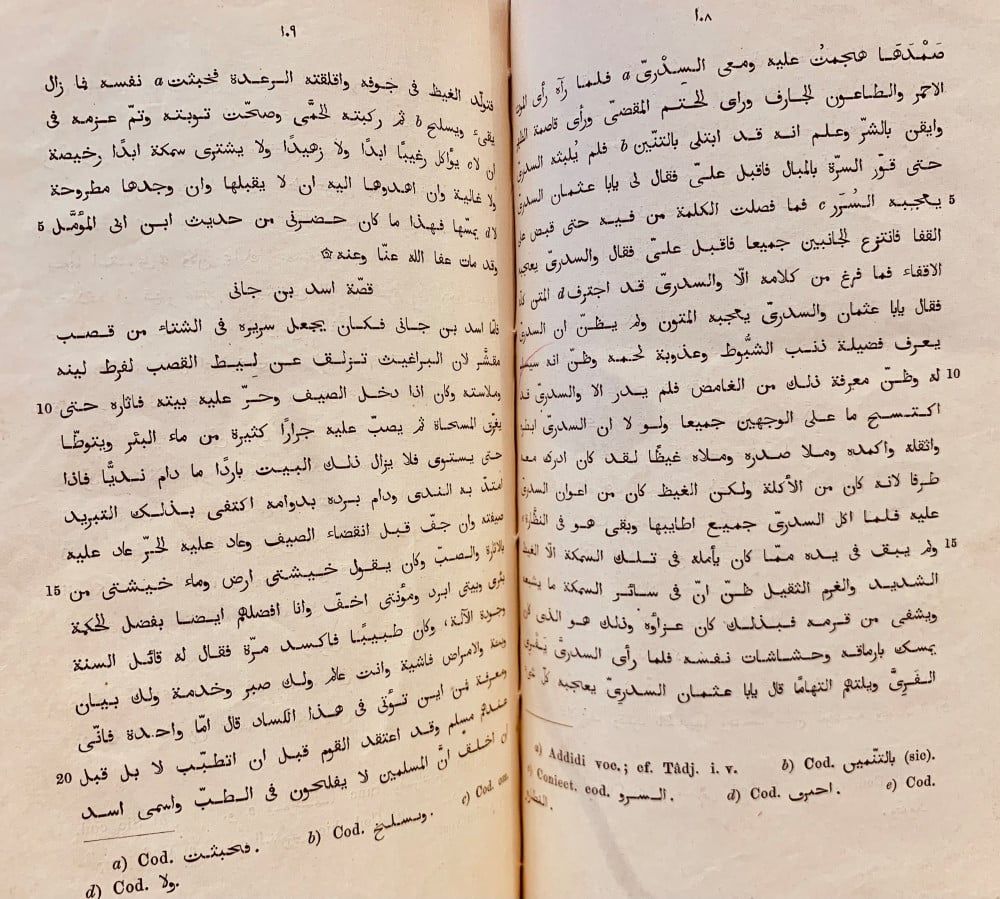 ١٠٨
صَمْدَهَا هجمتُ عليه ومعى السِدْرىّ a فلما رآه رأى
الاحمر والطاعون الجارف وراى الحتم المقضىّ ورأى قاصمة
وايقن بالشرّ وعلم انه قد ابتلى بالتنّين b فلم يُلبثه السدرىّ
حتى قوّر السرّة بالمبال فاقبل علىّ فقال لى يابا عثمان السدرىّ
5 يعجبه السُرَر c فما فصلت الكلمة من فيه حتى قبض على
القفا فانتزع الجانبين جميعا فاقبل علىّ فقال والسدرىّ يعجبه
الاقفاء فما فرغ من كلامه الّا والسدرىّ قد اجترف d المتن كلّه
فقال يابا عثمان والسدرىّ يعجبه المتون ولم يظنّ ان السدرىّ
يعرف فضيلة ذنب الشبُّوط وعذوبة لحمه وظنّ انه
10 له وظنّ معرفة ذلك من الغامض فلم يدر الا والسدرىّ قد
اكتسح ما على الوجهين جميعا ولو لا ان السدرىّ
واثقله واكمده وملا صدره وملاه غيظًا لقد كان ادرك معه
طرفا لانه كان من الأكلة ولكن الغيظ كان من اعوان السدرىّ
عليه فلما اكل السدرىّ جميع اطايبها وبقى هو فى النظّارة
15 ولم يبق فى يده ممّا كان يأمله فى تلك السمكة الّا الغيظ
الشديد والغرم الثقيل ظنّ انّ فى سائر السمكة ما يشبعه
ويشفى من قرمه فبذلك كان عزاؤه وذلك هو الذى كان
يمسك بارماقه وحشاشات نفسه فلما رأى السدرىّ يَفْرى
الفَرِىَّ ويلتهم التهامًا قال يابا عثمان السدرىّ يعاجبه كلّ شىء
a) Addidi voc.; cf. Tâdj. i. v. b) Cod. بالتنّميں (sic).
c) Coniect. cod. السرو. d) Cod. احىرى. e) Cod.
النظار.
١٠٩
فتولّد الغيظ فى جوفه واقلقته الرعدة فخبثت a نفسه فما زال
يقىء ويسلح b ثم ركبته الحمَّى وصحّت توبته وتمّ عزمه فى
ان لا c يؤاكل رغيبًا ابدًا ولا زهيدًا ولا يشترى سمكة ابدًا رخيصة
ولا غالية وان اهدوها اليه ان لا يقبلها وان وجدها مطروحة
5 لا d يمسّها فهذا ما كان حضرنى من حديث ابن ابى المؤمَّل
وقد مات عفا الله عنّا وعنه ۞
قصّة اسد بن جانى
فامّا اسد بن جانى فكان يجعل سريره فى الشتاء من قصب
مقشَّر لان البراغيث تزلق عن لِيط القصب لفرط لينه
10 وملاسته وكان اذا دخل الصيف وحرّ عليه بيته فاثاره حتى
يغرّق المسحاة ثم يصبّ عليه جرارًا كثيرة من ماء البئر ويتوطّا
حتى يستوى فلا يزال ذلك البيت باردًا ما دام نديًّا فاذا
امتدّ به الندى ودام برده بدوامه اكتفى بذلك التبريد
صيفته وان جفّ قبل انقضاء الصيف وعاد عليه الحرّ عاد عليه
15 بالاثارة والصبّ وكان يقول خيشتى ارض وماء خيشتى من
بئرى وبيتى ابرد ومؤنتى اخفّ وانا افضلهم ايضا بفضل الحكمة
وجودة الآلة، وكان طبيبًا فاكسد مرّة فقال له قائل السنة
وبئة والامراض فاشية وانت عالم ولك صبر وخدمة ولك بيان
ومعرفة فمن اين تؤتى فى هذا الكساد قال امّا واحدة فانّى
20 عندهم مسلم وقد اعتقد القوم قبل ان اتطبّب لا بل قبل
ان اخلق انّ المسلمين لا يفلحون فى الطبّ واسمى اسد
a) Cod. فحبثت. b) Cod. ويسلخ. c) Cod. om.
d) Cod. ولا.